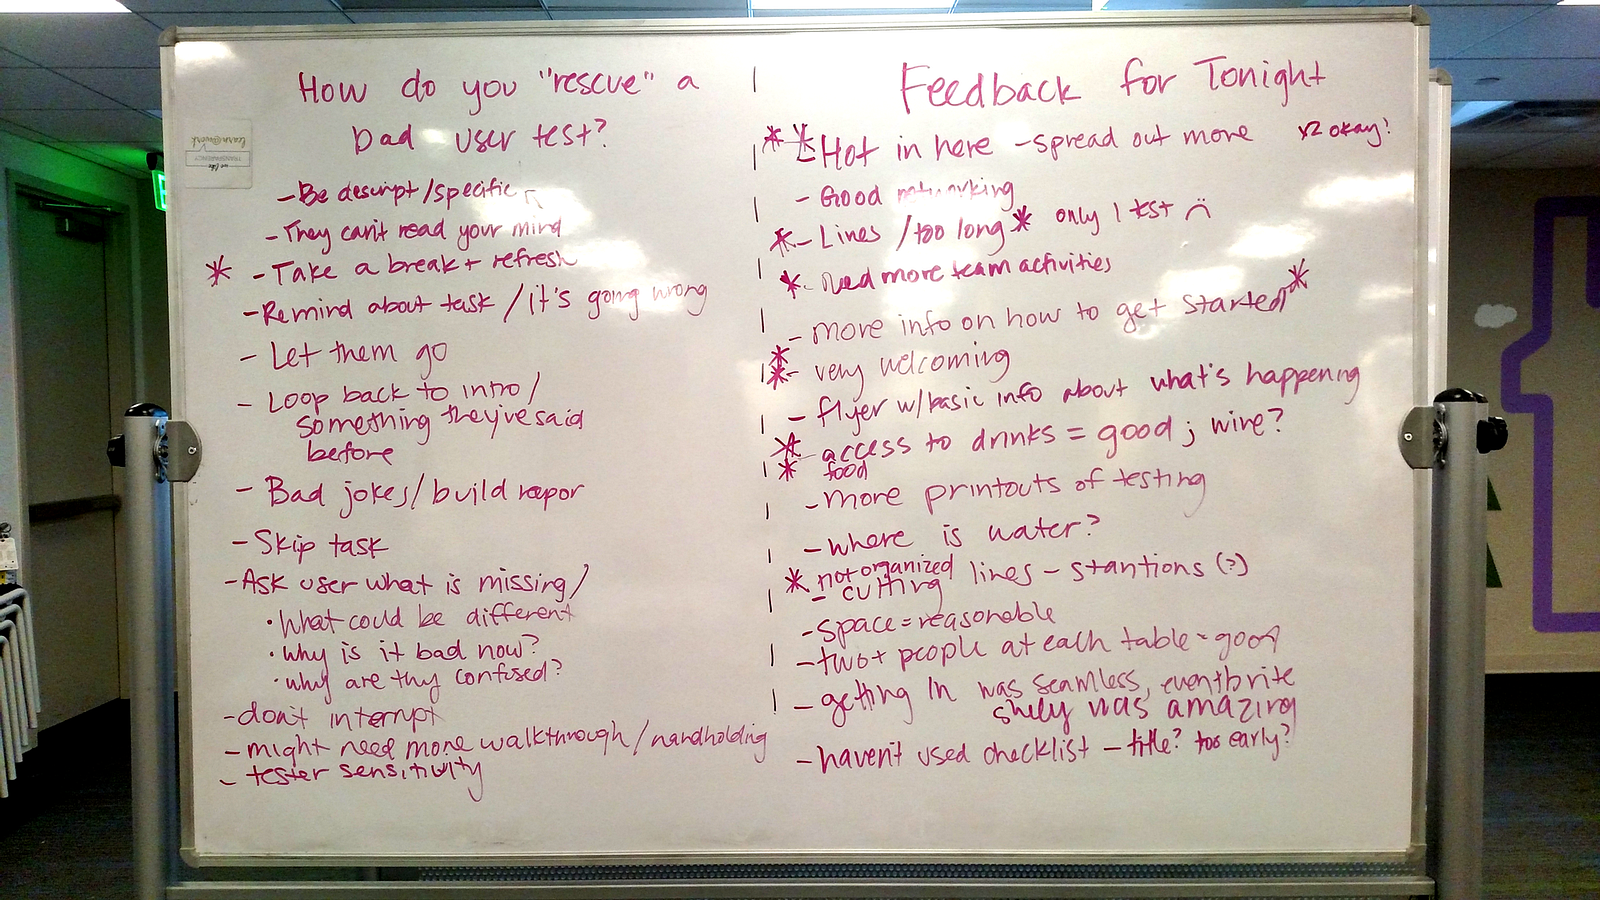 How do you "rescue" a
bad user test?
- Be descript / specific
- They can't read your mind
* - Take a break + refresh
- Remind about task / it's going wrong
- Let them go
- Loop back to intro /
something they've said
before
- Bad jokes / build rapor
- Skip task
- Ask user what is missing /
· What could be different
· Why is it bad now?
· why are thy confused?
- don't interrupt
- might need more walkthrough / handholding
- tester sensitivity
Feedback for Tonight
* * - Hot in here - spread out more x2 okay!
- Good networking
* - Lines / too long * only 1 test ☹
* - need more team activities
- more info on how to get started *
* * - very welcoming
- flyer w/ basic info about what's happening
* * - access to drinks = good ; wine?
food
- more printouts of testing
- where is water?
* not organized
- cutting lines - stantions (?)
- space = reasonable
- two+ people at each table = good
- getting in was seamless, eventbrite
was amazing
- haven't used checklist - title? too early?
learn@work
we like
TRANSPARENCY